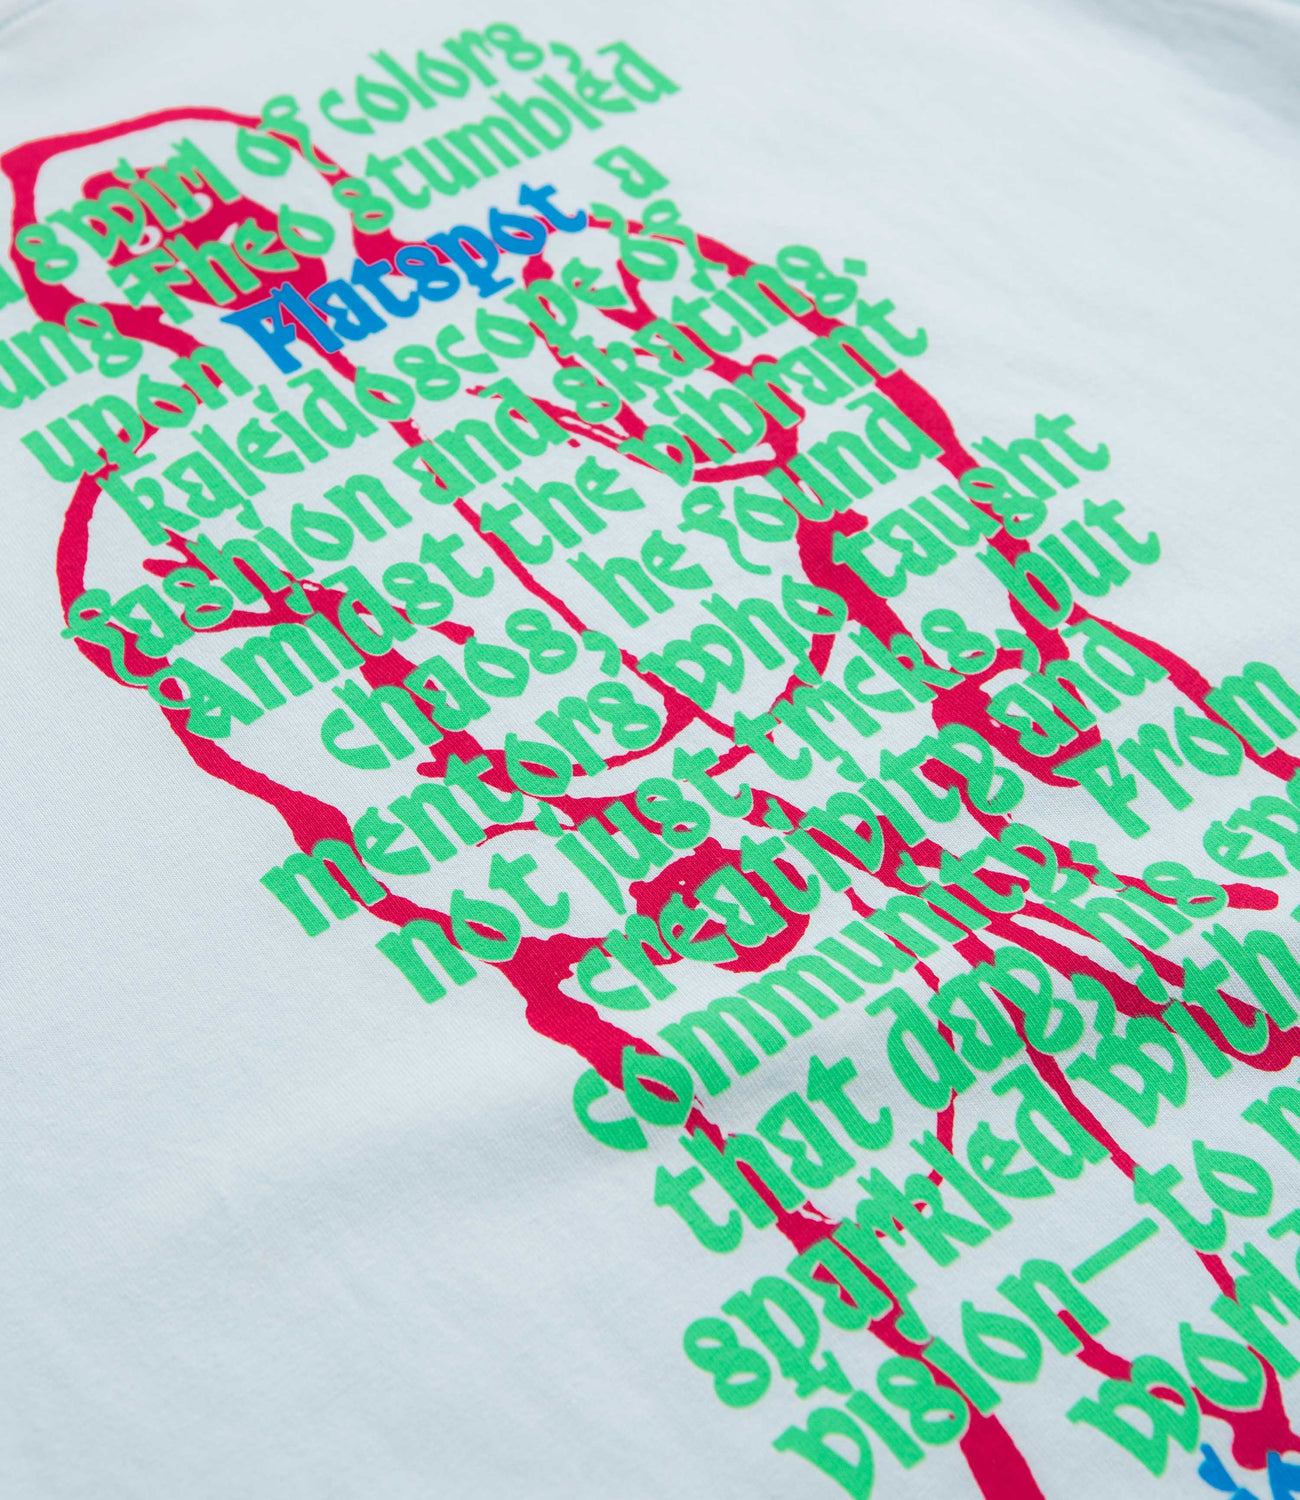 swirl of colors,
Theo stumbled
upon Flatspot a
kaleidoscope of
fashion and skating.
Amidst the vibrant
chaos, he found
mentors who taught
not just tricks, but
creativity and
community. From
that day, his
sparkled with
vision—to